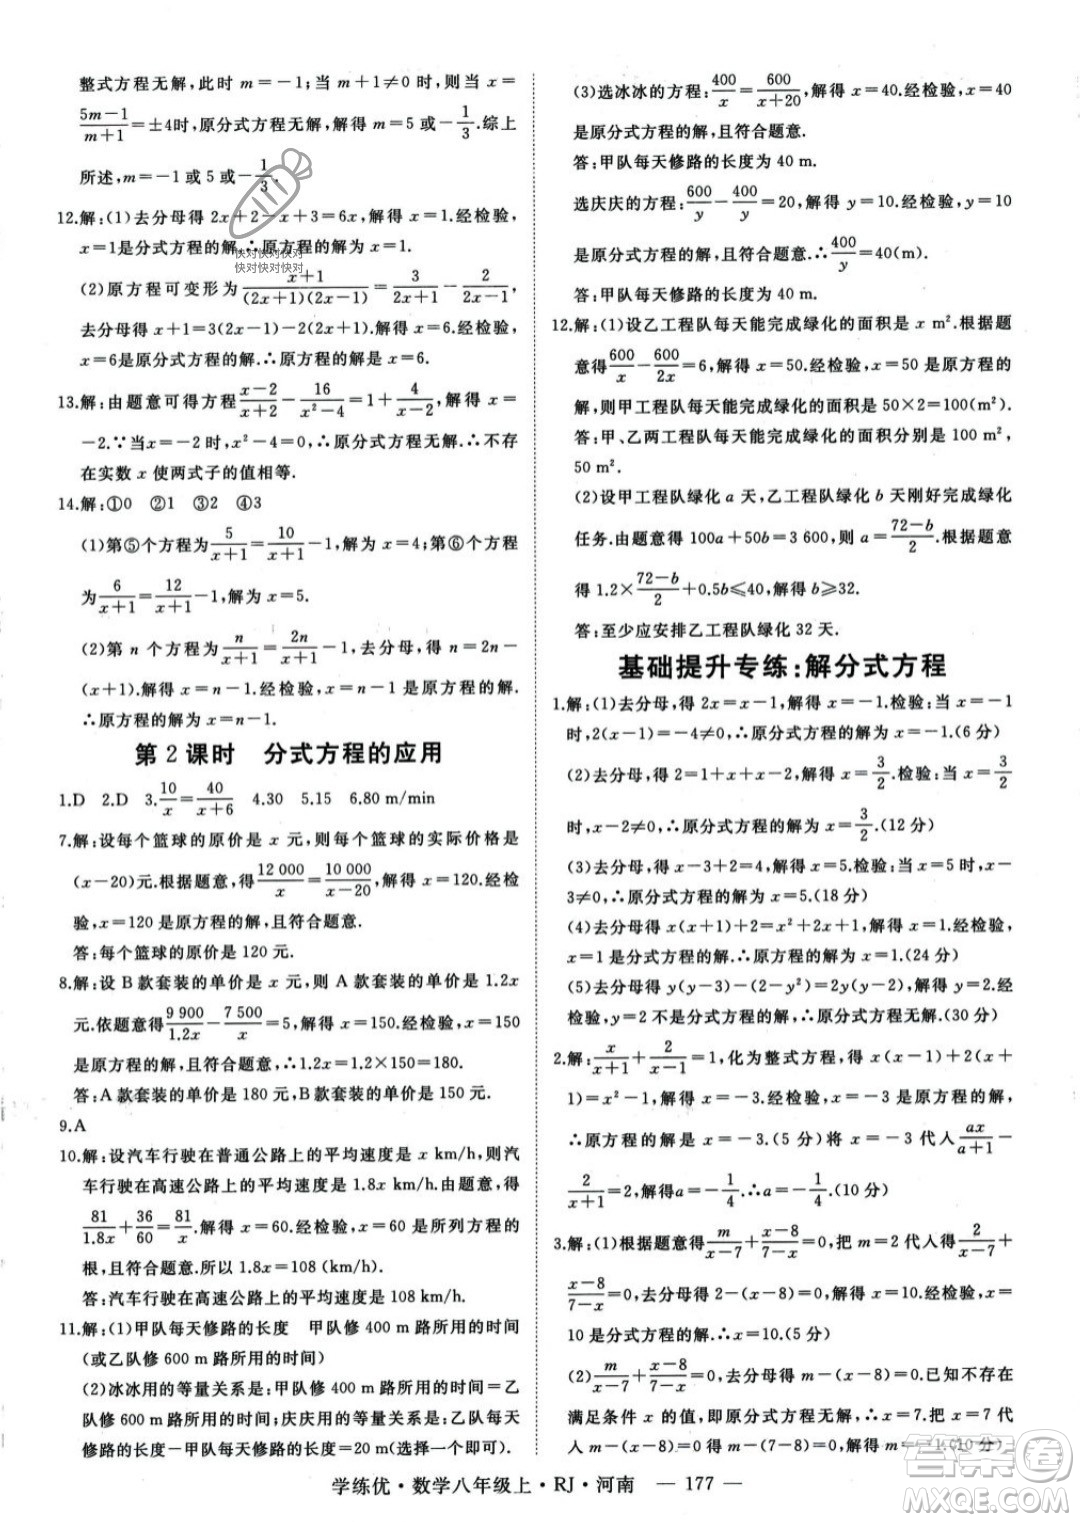 整式方程无解,此时 m=-1;当 m+1≠0 时,则当 x=
\frac{5m-1}{m+1}=±4时,原分式方程无解,解得 m=5 或-\frac{1}{3}.综上
所述,m=-1或 5 或-\frac{1}{3}.
12.解:(1)去分母得 2x+2-x+3=6x,解得 x=1.经检验,
x=1是分式方程的解,∴原方程的解为 x=1.
快对快对快对
快对快对快对
(2)原方程可变形为\frac{x+1}{(2x+1)(2x-1)}=\frac{3}{2x+1}-\frac{2}{2x-1},
去分母得 x+1=3(2x-1)-2(2x+1),解得 x=6.经检验,
x=6是原分式方程的解.∴原方程的解是 x=6.
13.解:由题意可得方程\frac{x-2}{x+2}-\frac{16}{x²-4}=1+\frac{4}{x-2},解得 x=
-2.∵当 x=-2 时,x²-4=0,∴原分式方程无解.∴不存
在实数 x 使两式子的值相等.
14.解:①0 ②1 ③2 ④3
(1)第⑤个方程为\frac{5}{x+1}=\frac{10}{x+1}-1,解为 x=4;第⑥个方程
为\frac{6}{x+1}=\frac{12}{x+1}-1,解为 x=5.
(2)第 n 个方程为\frac{n}{x+1}=\frac{2n}{x+1}-1,去分母,得 n=2n-
(x+1).解得 x=n-1.经检验,x=n-1是原分式方程的解.
∴原方程的解为 x=n-1.
第 2 课时 分式方程的应用
1.D 2.D 3.\frac{10}{x}=\frac{40}{x+6} 4.30 5.15 6.80 m/min
7.解:设每个篮球的原价是 x 元,则每个篮球的实际价格是
(x-20)元.根据题意,得\frac{12 000}{x}=\frac{10 000}{x-20},解得 x=120.经检
验,x=120 是原方程的解,且符合题意.
答:每个篮球的原价是 120 元.
8.解:设 B 款套装的单价是 x 元,则 A 款套装的单价是 1.2x
元.依题意得\frac{9 900}{1.2x}-\frac{7 500}{x}=5,解得 x=150.经检验,x=150
是原方程的解,且符合题意,∴1.2x=1.2×150=180.
答:A 款套装的单价是 180 元,B款套装的单价是 150 元.
9.A
10.解:设汽车行驶在普通公路上的平均速度是 x km/h,则汽
车行驶在高速公路上的平均速度是 1.8x km/h.由题意,得
\frac{81}{1.8x}+\frac{36}{60}=\frac{81}{x}.解得 x=60.经检验,x=60 是所列方程的
根,且符合题意.所以 1.8x=108 (km/h).
答:汽车行驶在高速公路上的平均速度是 108 km/h.
11.解:(1)甲队每天修路的长度 甲队修 400 m 路所用的时间
(或乙队修 600 m 路所用的时间)
(2)冰冰用的等量关系是:甲队修 400 m 路所用的时间=乙
队修 600 m 路所用的时间;庆庆用的等量关系是:乙队每天
修路的长度-甲队每天修路的长度=20 m(选择一个即可).
(3)选冰冰的方程:\frac{400}{x}=\frac{600}{x+20},解得 x=40.经检验,x=40
是原分式方程的解,且符合题意.
答:甲队每天修路的长度为 40 m.
选庆庆的方程:\frac{600}{y}-\frac{400}{y}=20,解得 y=10.经检验,y=10
是原分式方程的解,且符合题意.∴\frac{400}{y}=40(m).
答:甲队每天修路的长度为 40 m.
12.解:(1)设乙工程队每天能完成绿化的面积是 x m².根据题
意得\frac{600}{x}-\frac{600}{2x}=6,解得 x=50.经检验,x=50 是原方程的
解,则甲工程队每天能完成绿化的面积是 50×2=100(m²).
答:甲、乙两工程队每天能完成绿化的面积分别是 100 m²、
50 m².
(2)设甲工程队绿化 a 天,乙工程队绿化 b 天刚好完成绿化
任务.由题意得 100a+50b=3 600,则 a=\frac{72-b}{2}.根据题意,
得 1.2×\frac{72-b}{2}+0.5b≤40,解得 b≥32.
答:至少应安排乙工程队绿化 32 天.
基础提升专练:解分式方程
1.解:(1)去分母,得 2x=x-1,解得 x=-1.检验:当 x=-1
时,2(x-1)=-4≠0,∴原分式方程的解为 x=-1.(6分)
(2)去分母,得 2=1+x-2+2x,解得 x=\frac{3}{2}.检验:当 x=\frac{3}{2}
时,x-2≠0,∴原分式方程的解为 x=\frac{3}{2}.(12 分)
(3)去分母,得 x-3+2=4,解得 x=5.检验:当 x=5 时,x-
3≠0,∴原分式方程的解为 x=5.(18 分)
(4)去分母得 x(x+1)+2=x²+2x+1,解得 x=1.经检验,
x=1是分式方程的解.(24 分)
(5)去分母得 y(y-3)-(2-y²)=2y(y-2),解得 y=2.经
检验,y=2 不是分式方程的解,∴原分式方程无解.(30 分)
2.解:\frac{x}{x+1}+\frac{2}{x-1}=1,化为整式方程,得 x(x-1)+2(x+
1)=x²-1,解得 x=-3.经检验,x=-3是原方程的解.
∴原方程的解为 x=-3.(5 分)将 x=-3 代入\frac{ax}{a+1}-
\frac{2}{x+1}=2,解得a=-\frac{1}{4}.∴a=-\frac{1}{4}.(10 分)
3.解:(1)根据题意得\frac{m}{x-7}+\frac{x-8}{7-x}=0,把 m=2代入得\frac{2}{x-7}+
\frac{x-8}{7-x}=0,去分母得 2-(x-8)=0,解得 x=10.经检验,x=
10 是分式方程的解,∴x=10.(5分)
(2)\frac{m}{x-7}+\frac{x-8}{7-x}=0,去分母得 m-(x-8)=0.已知不存在
满足条件 x 的值,即原分式方程无解,∴x=7.把 x=7 代
入 m-(x-8)=0,得 m-(7-8)=0,解得 m=-1.(10 分)
学练优·数学八年级上·RJ·河南 — 177 —
答案圈
MXQE.COM